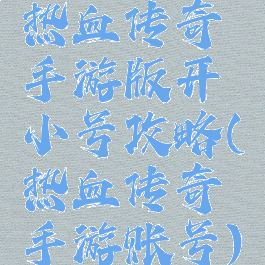 热血传奇
手游版开
小号攻略(
热血传奇
手游账号)